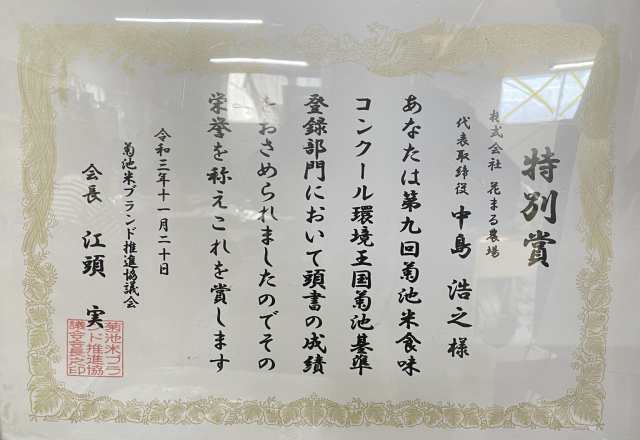 特別賞
株式会社 花まる農場
代表取締役 中島 浩之 様
あなたは第九回菊池米食味
コンクール環境王国菊池基準
登録部門において頭書の成績
をおさめられましたのでその
栄誉を称えこれを賞します
令和三年十一月二十日
菊池米ブランド推進協議会
会長 江頭 実
菊池米ブラ
ンド推進協
議会会長之印